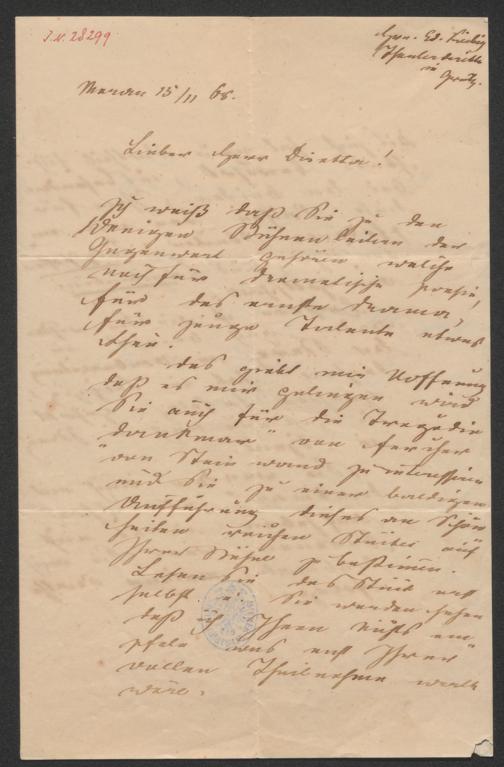 I.N. 28299
Herrn Ed. Kreibig
Theaterdirektor
in
Gratz.
Meran 15/11 68.
Lieber Herr Direktor!
Ich weiß daß Sie zu den
wenigen Bühnenleitern der
Gegenwart gehören welche
noch für dramatische Poesie,
für das ernste Drama,
für junge Talente etwas
thun.
Das giebt mir Hoffnung
daß es mir gelingen wird
Sie auch für die Tragödie
"Dankmar" von Fercher
von Steinwand zu interessiren
und Sie zu einer baldigen
Aufführung dieses an Schön
heiten reichen Stückes auf
Ihrer Bühne zu bestimmen.
Lesen Sie das Stück erst
selbst u. Sie werden sehen
daß ich Ihnen nichts em
pfele was nicht Ihrer
vollen Theilnahme werth
wäre.